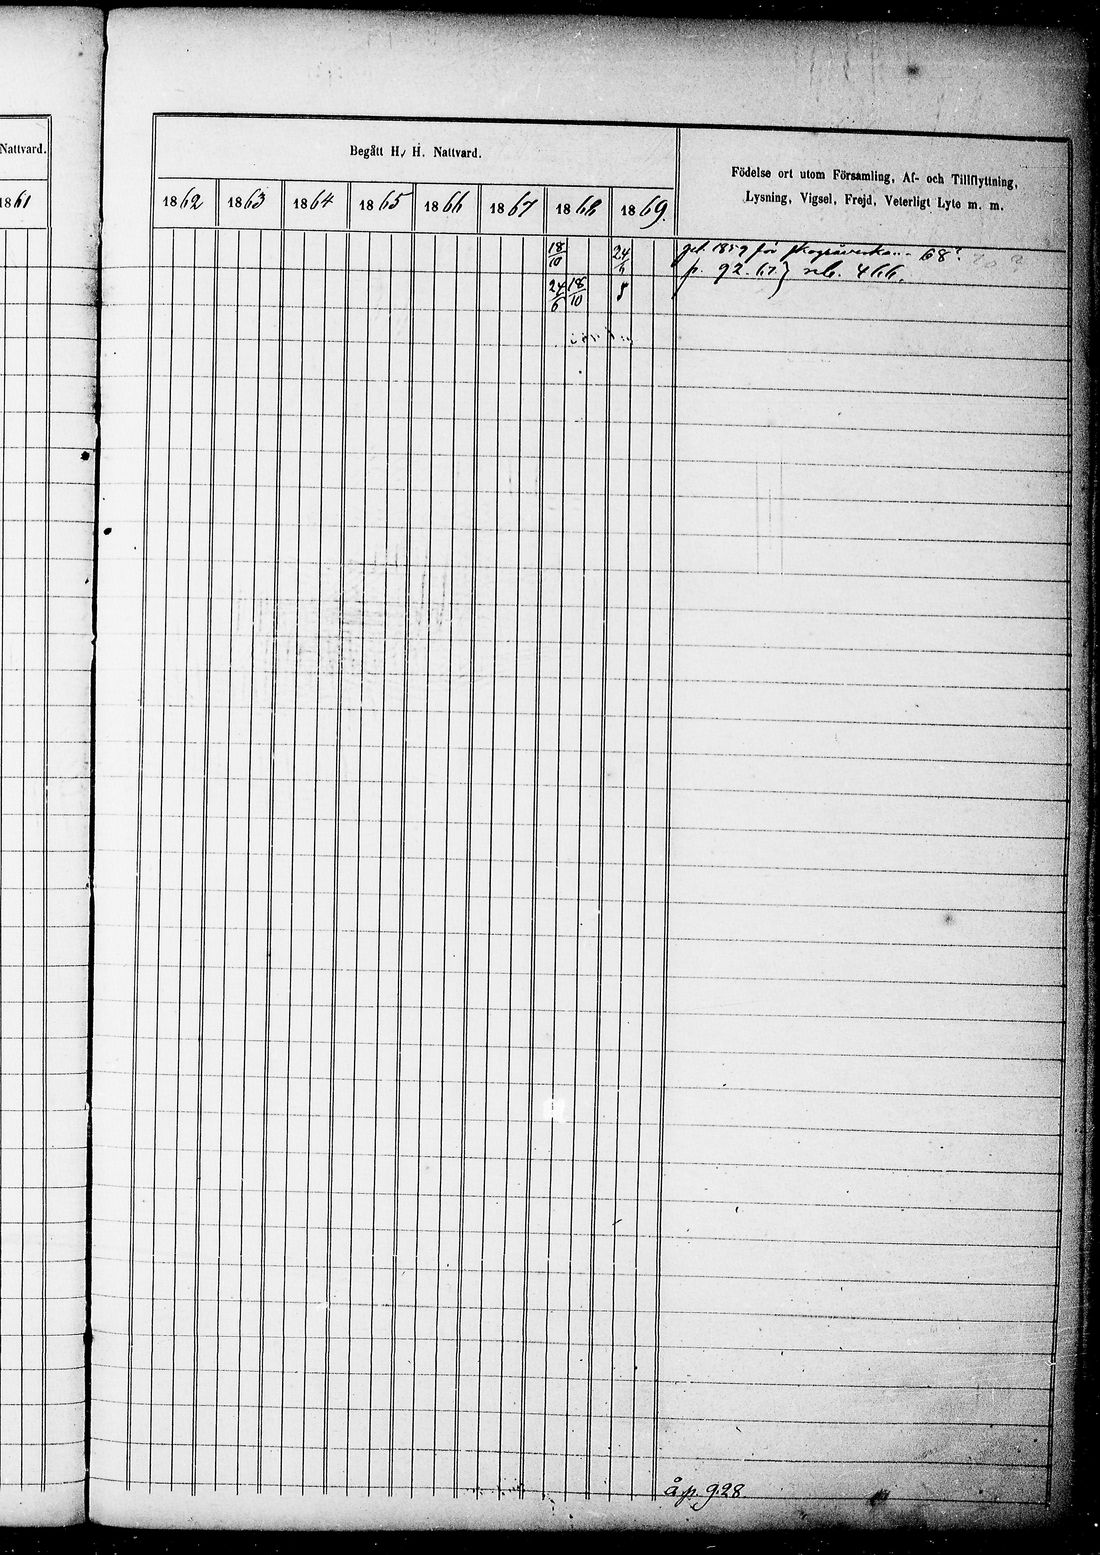 Nattvard.
1861
Begått H. H. Nattvard.
Födelse ort utom Församling, Af- och Tillflyttning,
Lysning, Vigsel, Frejd, Veterligt Lyte m. m.
1862 1863 1864 1865 1866 1867 1868 1869.
18/10 24/6 1859 för 68
p. 92. 466.
24/6 18/10
å p. 928.